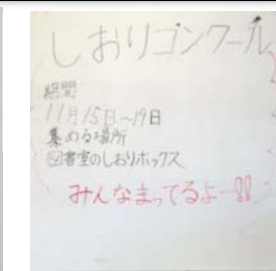 しおりコンクール
期間
11月15日~19日
集める場所
図書室のしおりボックス
みんなまってるよー!!